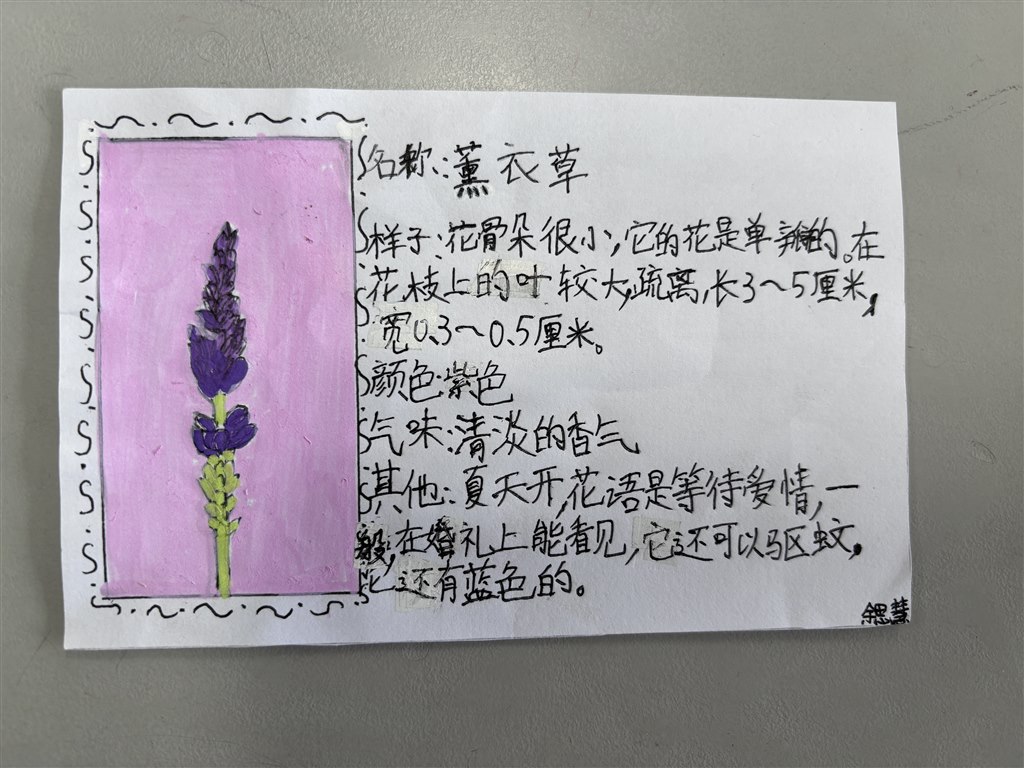 名称:薰衣草
样子:花骨朵很小,它的花是单瓣的。在
花枝上的叶较大,疏离,长3~5厘米,
宽0.3~0.5厘米。
颜色:紫色
气味:清淡的香气
其他:夏天开,花语是等待爱情,一
般在婚礼上能看见,它还可以驱蚊,
它还有蓝色的。